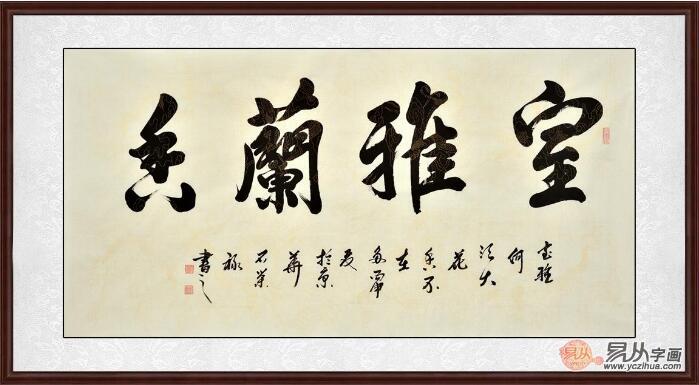 室雅蘭香
室雅
何
須大
花
香不
在
多丙申
夏
於京
華
石榮
祿
書之
易从字画
www.yczihua.com